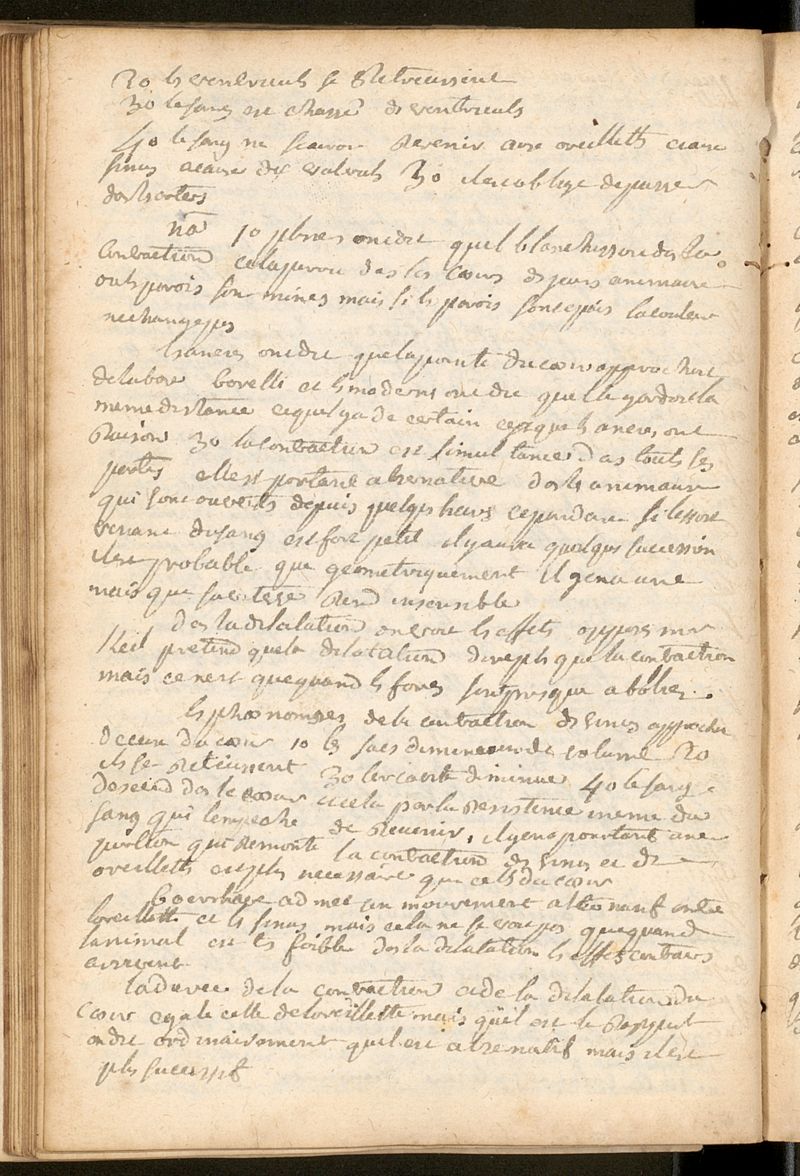 2o les ventricules se retrecissent
3o le sang est chassé des ventricules
4o le sang ne scauroit revenir aux oreillettes et aux
sinus a cause des valvules 3o il est obligé de passer
dans les arteres
na 1o plusieurs ont dit que le blanchissoit dans la
contraction cela paroit dans les cœurs des jeunes animaux
ou les parois sont minces mais si les parois sont epais la couleur
ne change pas
les anciens ont dit que la pointe du cœur approchoit
de la base borelli et les modernes ont dit quelle gardoit la
meme distance ce quil y a de certain cest que les anciens ont
raison 3o la contraction est simultanée dans toutes ses
parties elle est pourtant alternative dans les animaux
qui sont ouverts depuis quelques heures cependant si
du sang est fort petit il y aura quelque succession
il est probable que geometriquement il y en a une
mais que sa vitesse rend insensible
dans la dilatation on voit les effets opposés mr
pretend que la dilatation dure plus que la contraction
mais ce nest que quand les forces sont presque abolies.
les phœnomenes de la contraction des sinus approchent
de ceux du cœur 1o les sacs diminuent de volume 2o
ils se retrecissent 3o leur cavité diminue 4o le sang
descend dans le cœur et cela par la resistence meme du
sang qui lempeche de revenir, il y en a pourtant une
portion qui remonte la contraction des sinus et des
oreillettes est plus necessaire que celle du cœur
boerrhave admet un mouvement alternatif entre
loreillette et les sinus mais cela ne se voit pas que quand
lanimal est tres foible dans la dilatation les effets contraires
arrivent
la durée de la contraction et de la dilatation du
cœur egale celle de loreillette mais quel est le rapport
on dit ordinairement quil est alternatif mais il est
plus successif